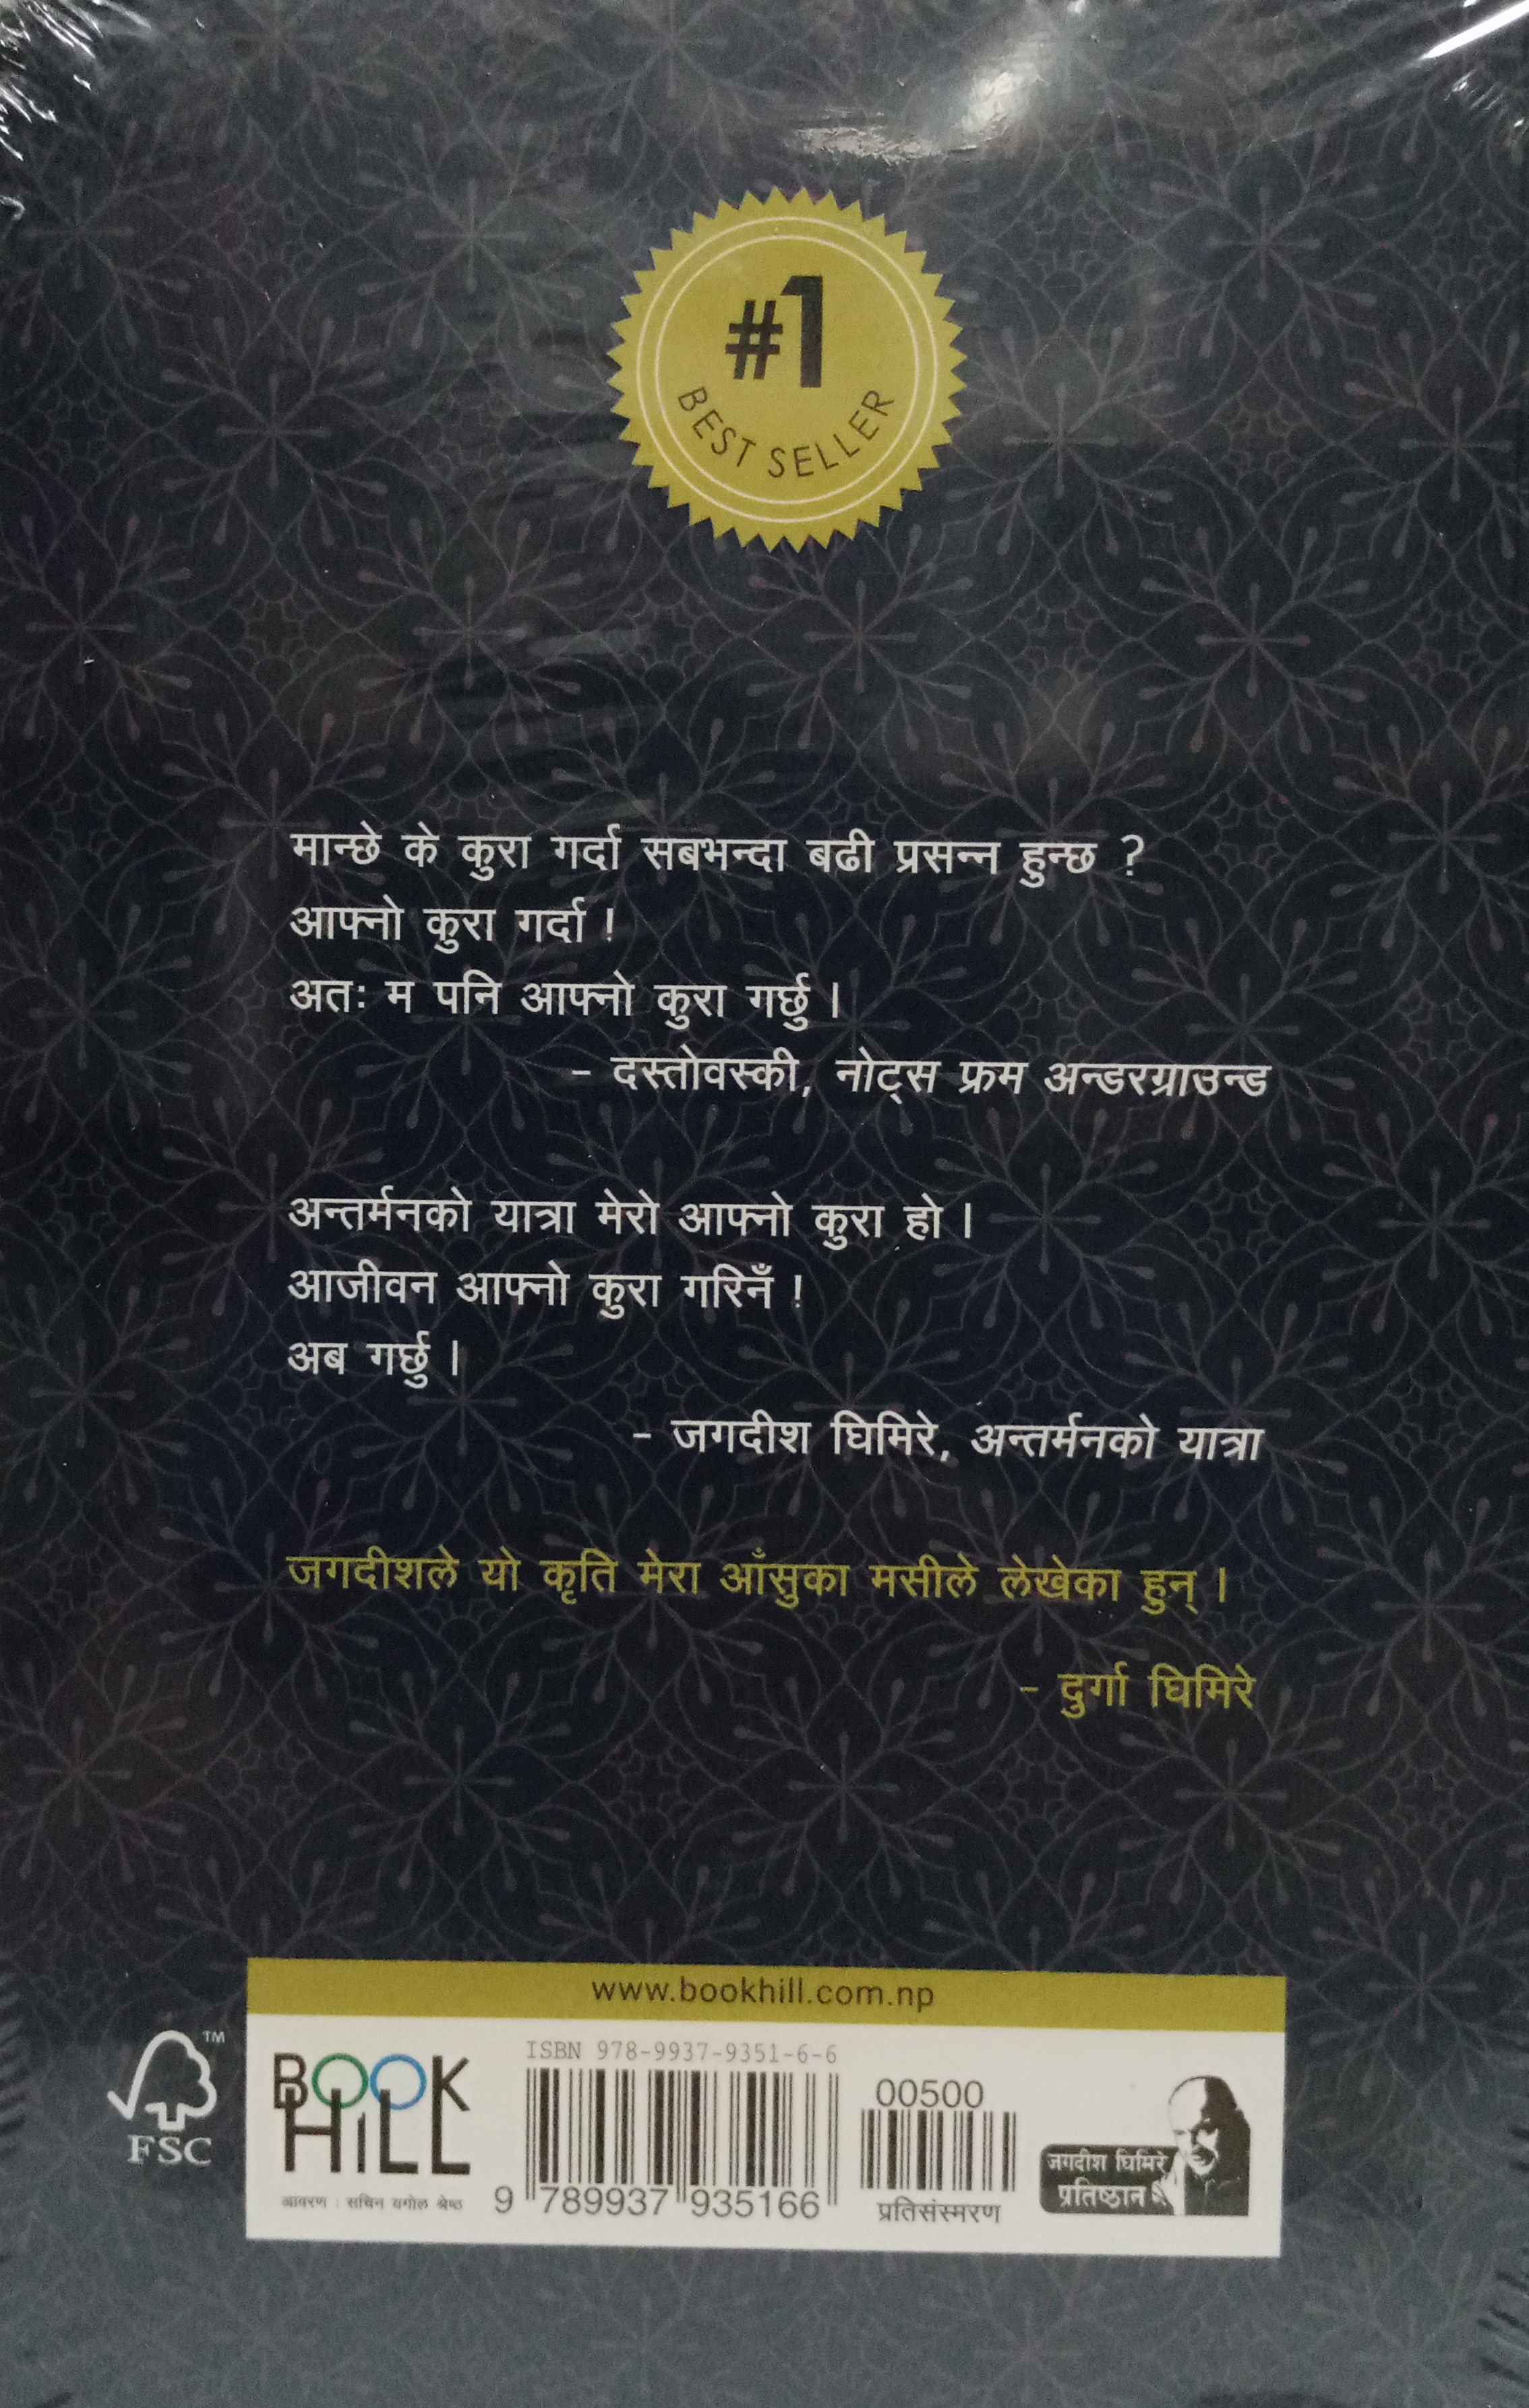 #1
BEST SELLER
मान्छे के कुरा गर्दा सबभन्दा बढी प्रसन्न हुन्छ ?
आफ्नो कुरा गर्दा !
अतः म पनि आफ्नो कुरा गर्छु ।
– दस्तोवस्की, नोट्स फ्रम अन्डरग्राउन्ड
अन्तर्मनको यात्रा मेरो आफ्नो कुरा हो ।
आजीवन आफ्नो कुरा गरिनँ !
अब गर्छु ।
– जगदीश घिमिरे, अन्तर्मनको यात्रा
जगदीशले यो कृति मेरा आँसुका मसीले लेखेका हुन् ।
– दुर्गा घिमिरे
www.bookhill.com.np
TM
FSC
BOOK
HiLL
आवरण : सचिन यगोल श्रेष्ठ
ISBN 978-9937-9351-6-6
9 789937 935166
00500
प्रतिसंस्मरण
जगदीश घिमिरे
प्रतिष्ठान